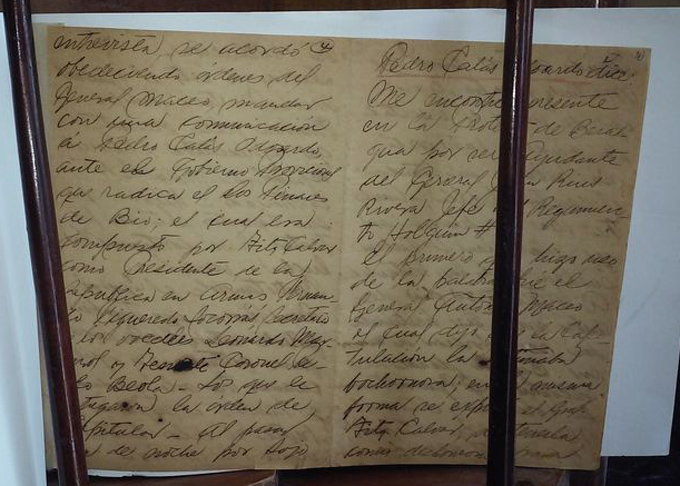 ntrevista, se acordó
obedeciendo órdenes del
General Maceo, mandar
con una comunicación
á Pedro Calás Odoardo,
ante el Gobierno Provicional
que radica el los Pinares
de Bio: el cual era
compuesto por Fito Calvar
como Presidente de la
república en armas
to Figueredo Socarrás Secretario
los vocales Leonardo Mar
mol y Teniente Coronel
lo Beola - los que le
la órden de
Capitular - Al pasar
de noche por
4
Pedro Calás Odoardo dice:
Me encontré presente
en la Protes de Bara
gua por ser Ayudante
del General Juan Rius
Rivera Jefe del Regimien
to Holguin #
El primero que hizo uso
de la palabra fué el
General Antonio Maceo
el cual dijo que la Capi
tulacion la estimaba
bochornosa; en misma
forma se expresó el Gral
Fito Calvar,
como